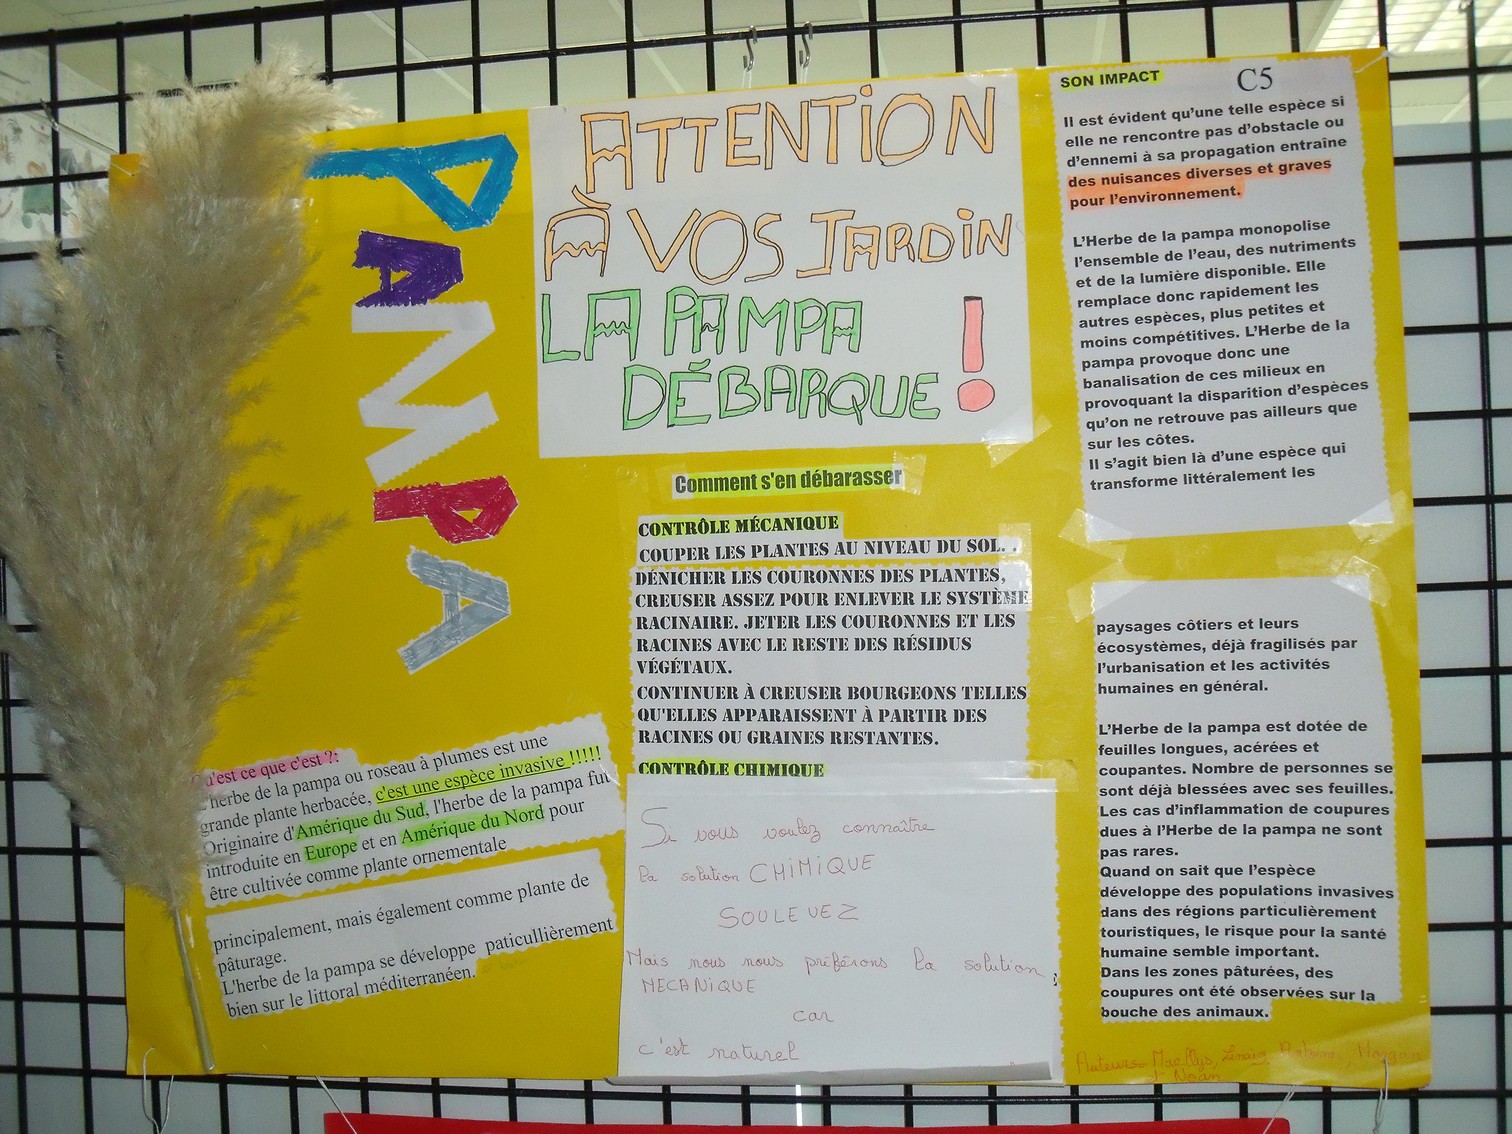 PAMPA
ATTENTION
À VOS JARDIN
LA PAMPA
DÉBARQUE !
Qu'est ce que c'est ?:
L'herbe de la pampa ou roseau à plumes est une
grande plante herbacée, c'est une espèce invasive !!!!!
Originaire d'Amérique du Sud, l'herbe de la pampa fut
introduite en Europe et en Amérique du Nord pour
être cultivée comme plante ornementale
principalement, mais également comme plante de
pâturage.
L'herbe de la pampa se développe paticullièrement
bien sur le littoral méditerranéen.
Comment s'en débarasser
CONTRÔLE MÉCANIQUE
COUPER LES PLANTES AU NIVEAU DU SOL. .
DÉNICHER LES COURONNES DES PLANTES,
CREUSER ASSEZ POUR ENLEVER LE SYSTÈME
RACINAIRE. JETER LES COURONNES ET LES
RACINES AVEC LE RESTE DES RÉSIDUS
VÉGÉTAUX.
CONTINUER À CREUSER BOURGEONS TELLES
QU'ELLES APPARAISSENT À PARTIR DES
RACINES OU GRAINES RESTANTES.
CONTRÔLE CHIMIQUE
Si vous voulez connaître
la solution CHIMIQUE
SOULEVEZ
Mais nous nous préférons la solution
MECANIQUE
car
c'est naturel
SON IMPACT
C5
Il est évident qu'une telle espèce si
elle ne rencontre pas d'obstacle ou
d'ennemi à sa propagation entraîne
des nuisances diverses et graves
pour l'environnement.
L'Herbe de la pampa monopolise
l'ensemble de l'eau, des nutriments
et de la lumière disponible. Elle
remplace donc rapidement les
autres espèces, plus petites et
moins compétitives. L'Herbe de la
pampa provoque donc une
banalisation de ces milieux en
provoquant la disparition d'espèces
qu'on ne retrouve pas ailleurs que
sur les côtes.
Il s'agit bien là d'une espèce qui
transforme littéralement les
paysages côtiers et leurs
écosystèmes, déjà fragilisés par
l'urbanisation et les activités
humaines en général.
L'Herbe de la pampa est dotée de
feuilles longues, acérées et
coupantes. Nombre de personnes se
sont déjà blessées avec ses feuilles.
Les cas d'inflammation de coupures
dues à l'Herbe de la pampa ne sont
pas rares.
Quand on sait que l'espèce
développe des populations invasives
dans des régions particulièrement
touristiques, le risque pour la santé
humaine semble important.
Dans les zones pâturées, des
coupures ont été observées sur la
bouche des animaux.
Auteurs Maellys, Lenaig, Antoine, Morgan
et Noan